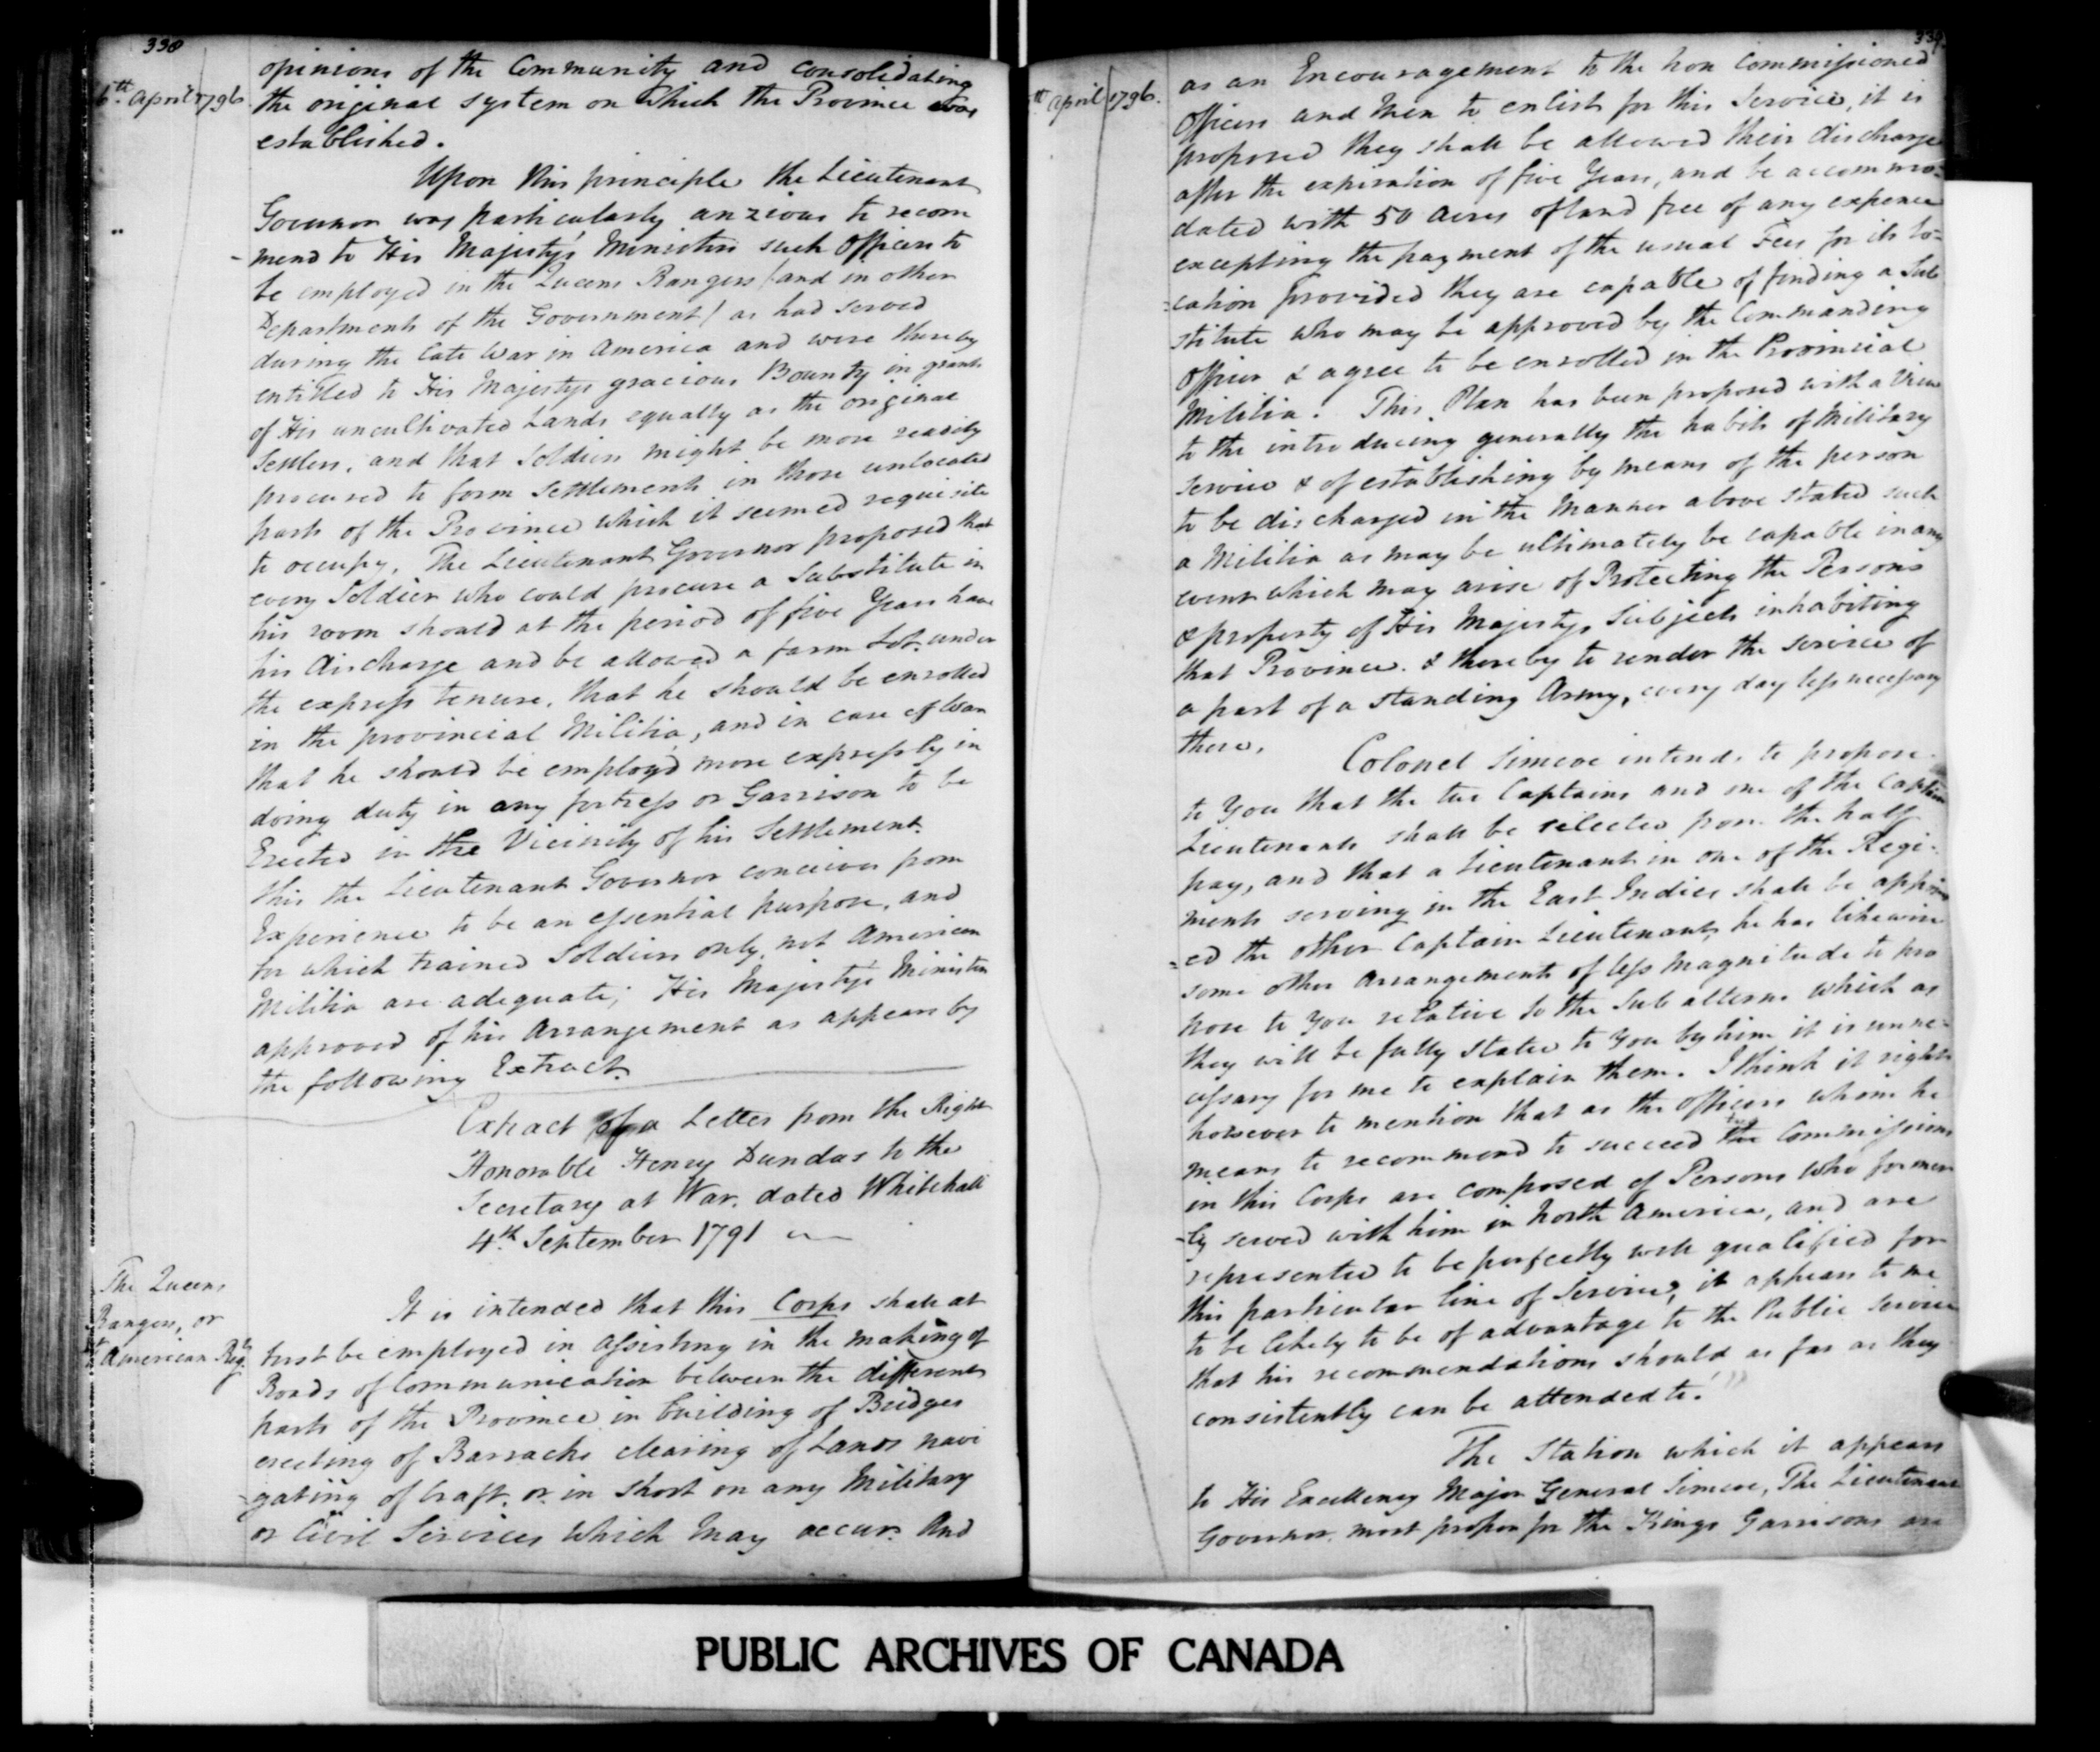 338
6th April 1796
opinions of the Community and consolidating
the original system on which the Province was
established.
Upon this principle the Lieutenant
Governor was particularly anxious to recom
-mend to His Majesty's Ministers such Officers to
be employed in the Queens Rangers (and in other
Departments of the Government) as had served
during the late War in America and were thereby
entitled to His Majestys gracious Bounty in grants
of His uncultivated Lands equally as the original
Settlers, and that Soldiers might be more readily
procured to form Settlements in those unlocated
parts of the Province which it seemed requisite
to occupy. The Lieutenant Governor proposed that
every Soldier who could procure a Substitute in
his room should at the period of five Years have
his discharge and be allowed a farm Lot. under
the express tenure, that he should be enrolled
in the provincial Militia, and in case of War
that he should be employ'd more expressly in
doing duty in any fortress or Garrison to be
Erected in the Vicinity of his Settlement.
this the Lieutenant Governor conceives from
Experience to be an essential purpose, and
for which trained Soldiers only, not American
Militia are adequate; His Majesty's Ministers
approved of his arrangement as appears by
the following Extract.
Extract of a Letter from the Right
Honorable Henry Dundas to the
Secretary at War. dated Whitehall
4th September 1791
The Queens
Rangers, or
1st American Regt.
It is intended that this Corps shall at
first be employed in assisting in the making of
Roads of Communication between the different
parts of the Province in building of Bridges
erecting of Barracks clearing of Lands navi
-gating of Craft, or in short on any Military
or Civil Services which may occur. And
339
April 1796.
as an Encouragement to the non Commissioned
Officers and Men to enlist for this Service, it is
proposed they shall be allowed their discharge
after the expiration of five Years, and be accommo-
dated with 50 Acres of land free of any expence
excepting the payment of the usual Fees for its lo-
=cation provided they are capable of finding a Sub
stitute who may be approved by the Commanding
Officer & agree to be enrolled in the Provincial
Militia. This Plan has been proposed with a View
to the introducing generally the habits of Military
service & of establishing by means of the person
to be discharged in the Manner above stated such
a Militia as may be ultimately be capable in any
event which may arise of Protecting the Persons
& property of His Majestys Subjects inhabiting
that Province. & thereby to render the service of
a part of a standing Army, every day less necessary
there.
Colonel Simcoe intends to propose
to You that the two Captains and one of the Captain
Lieutenants shall be selected from the half
pay, and that a Lieutenant in one of the Regi-
ments serving in the East Indies shall be appoint
=ed the other Captain Lieutenant, he has likewise
some other arrangements of less magnitude to pro
pose to You relative to the Subalterns which as
they will be fully stated to You by him it is unne-
cessary for me to explain them. I think it right
however to mention that as the officers whom he
means to recommend to succeed to Commissions
in this Corps are composed of Persons who former
-ly served with him in North America, and are
represented to be perfectly well qualified for
this particular line of Service, it appears to me
to be likely to be of advantage to the Public Service
that his recommendations should as far as they
consistently can be attended to."
The Station which it appears
to His Excellency Major General Simcoe, The Lieutenant
Governor, most proper for the Kings Garrisons are
PUBLIC ARCHIVES OF CANADA